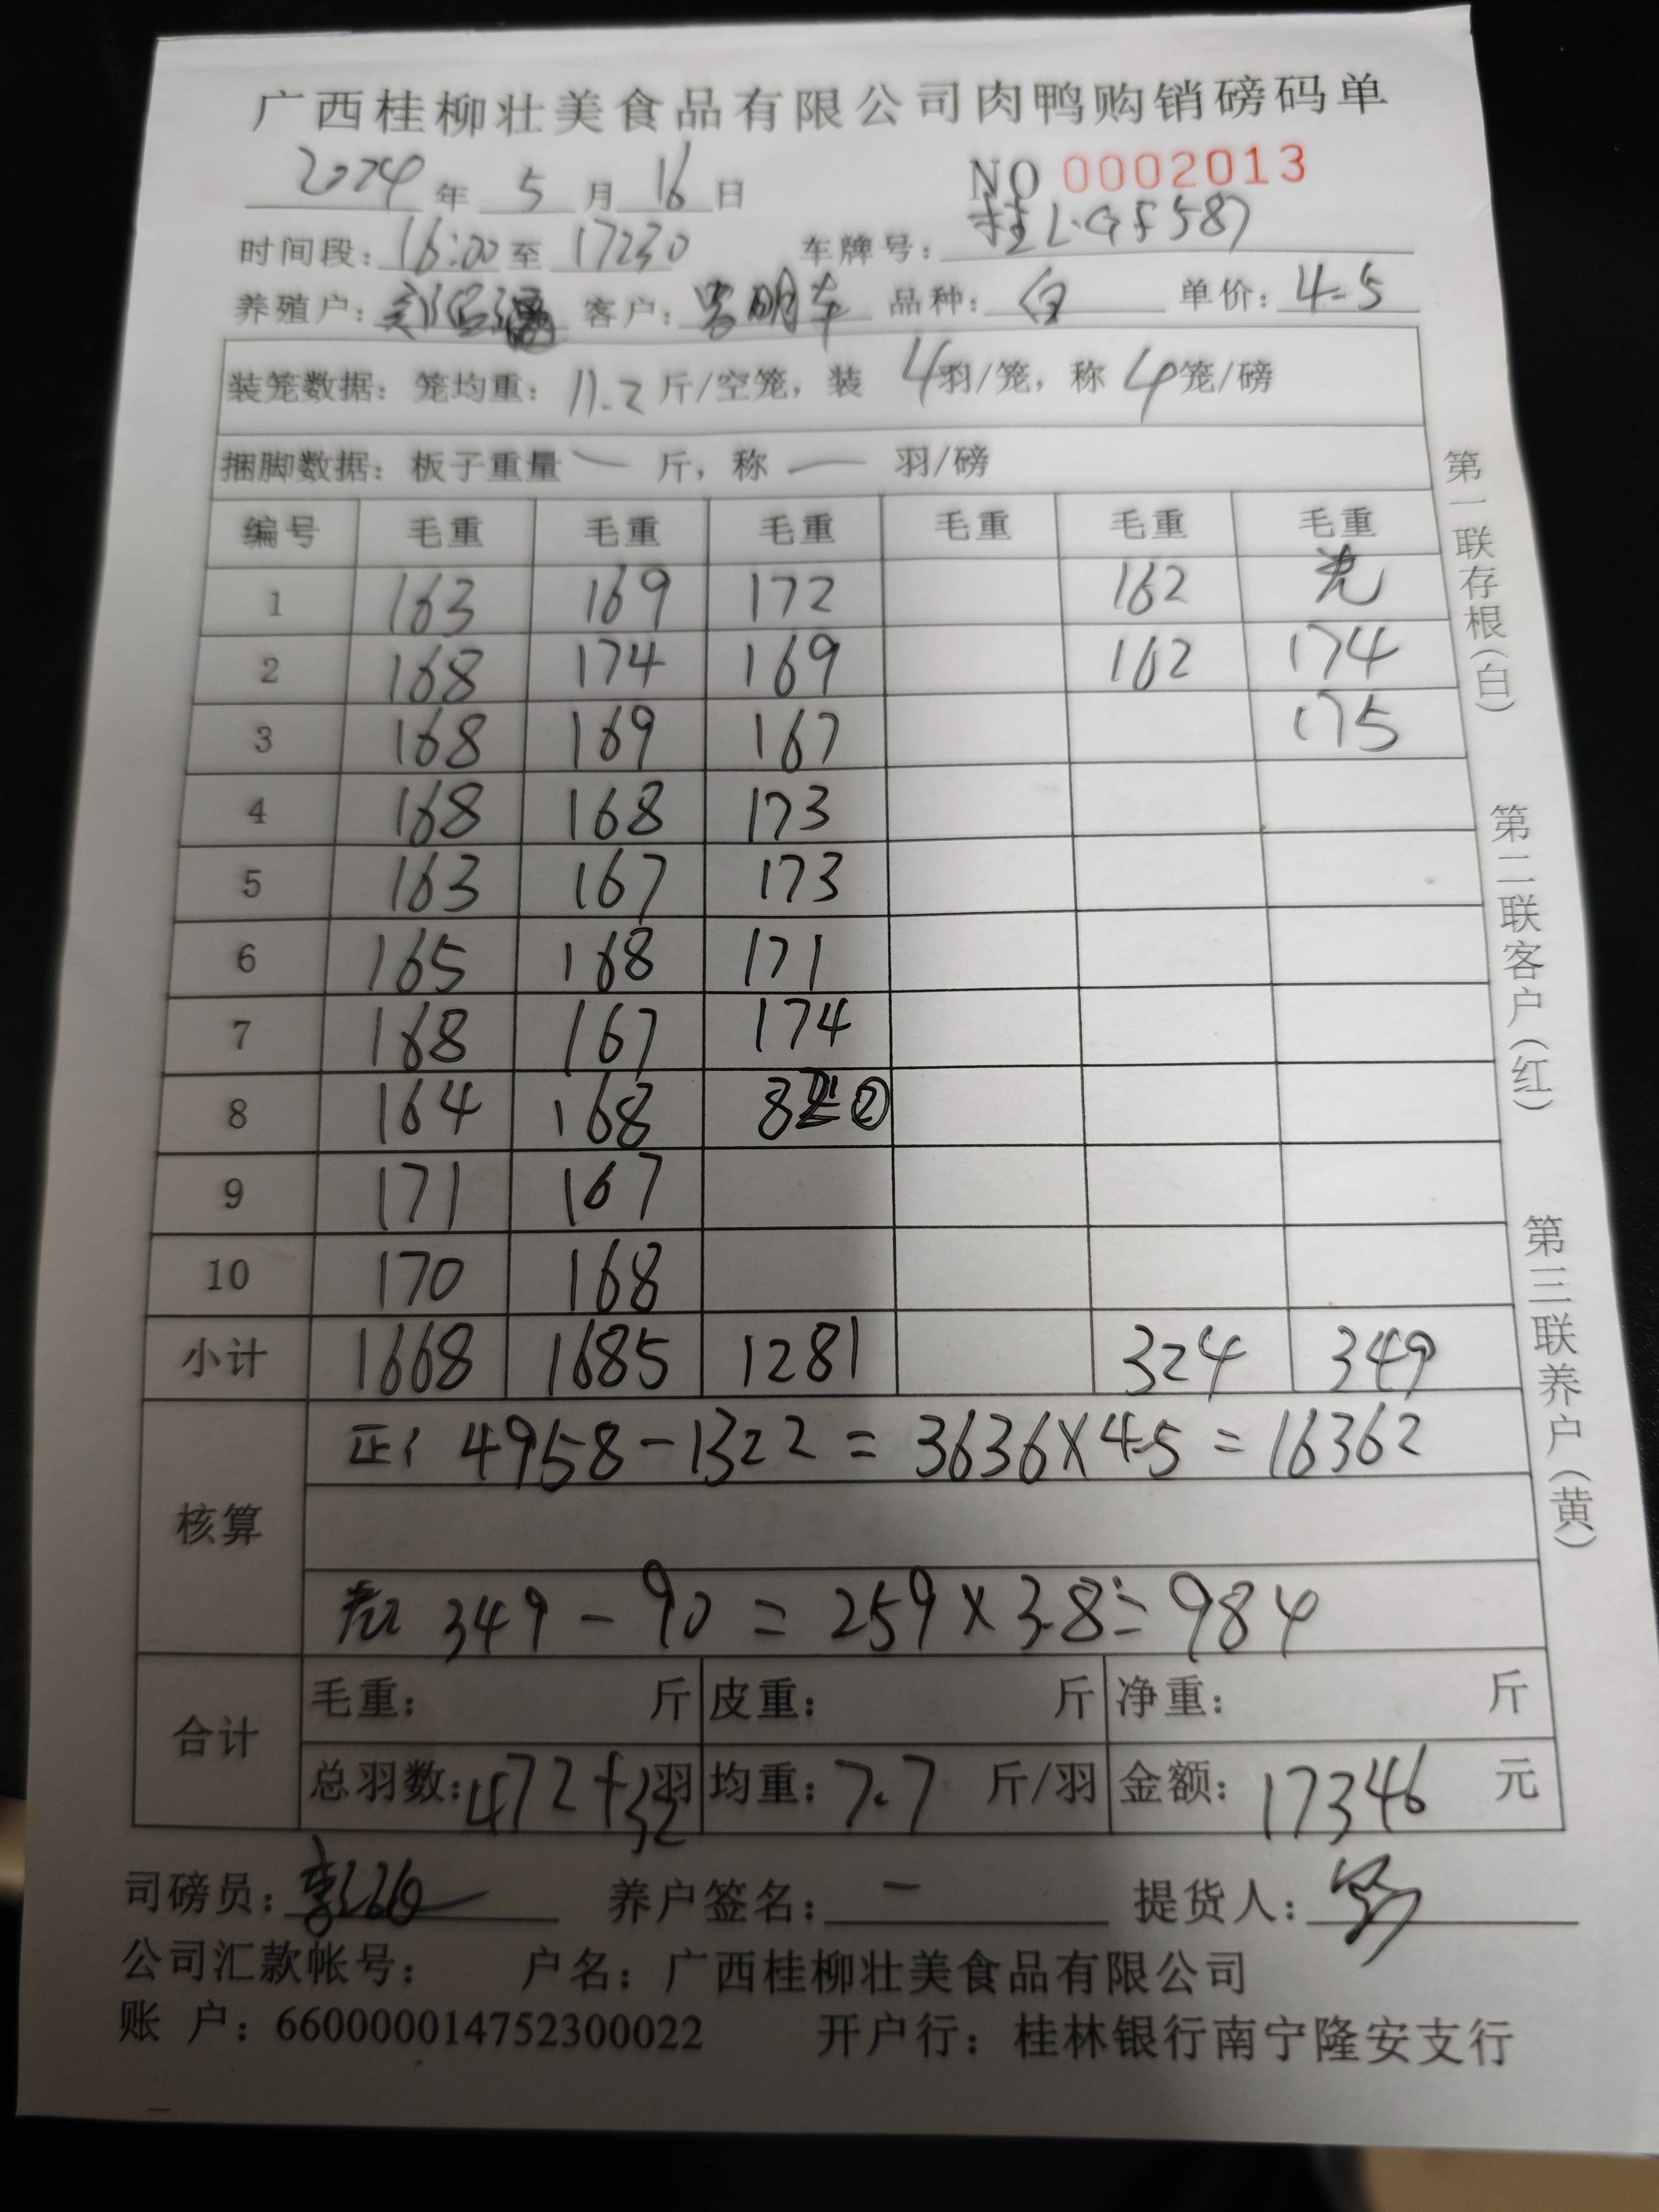 广西桂柳壮美食品有限公司肉鸭购销磅码单
2024年 5月16日 NO 0002013
时间段: 16:00 至 17:30 车牌号: 桂L·GF587
养殖户: 客户: 明车 品种: 白 单价: 4.5
装笼数据: 笼均重: 11.2 斤/空笼, 装 4羽/笼, 称 4笼/磅
捆脚数据: 板子重量 — 斤, 称 — 羽/磅
编号 毛重 毛重 毛重 毛重 毛重 毛重
1 163 169 172 162
2 168 174 169 162 174
3 168 169 167 175
4 168 168 173
5 163 167 173
6 165 168 171
7 168 167 174
8 164 168 82 ②
9 171 167
10 170 168
小计 1668 1685 1281 324 349
核算
正: 4958-1322=3636×4.5=16362
349-90=259×3.8≐984
合计 毛重: 斤 皮重: 斤 净重: 斤
总羽数: 472+32羽 均重: 7.7 斤/羽 金额: 17346 元
司磅员: 养户签名: — 提货人:
公司汇款帐号: 户名: 广西桂柳壮美食品有限公司
账 户: 660000014752300022 开户行: 桂林银行南宁隆安支行
第一联存根(白)
第二联客户(红)
第三联养户(黄)